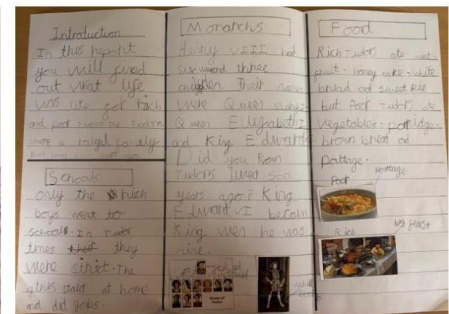 Introduction
In this report
you will find
out what life
was like for rich
and poor Tudors. Tudors
were a royal family
Schools
only the rich
boys went to
school. In tudor
times they
were strict. The
girls stayd at home
and did jobs.
Monarchs
Henry VIII had
six and three
Their
were Queen
Queen Elizabeth I
and King Edward
Did you
Tudors lived 500
years ago? King
Edward VI becam
King wen he was
nine.
Food
Rich Tudors ate
fruit - honey cake - white
bread and sweet Pie
but Poor Tudors ate
vegetables - porridge -
brown bread and
Pottage.
Poor
Pottage
Rich
big feast